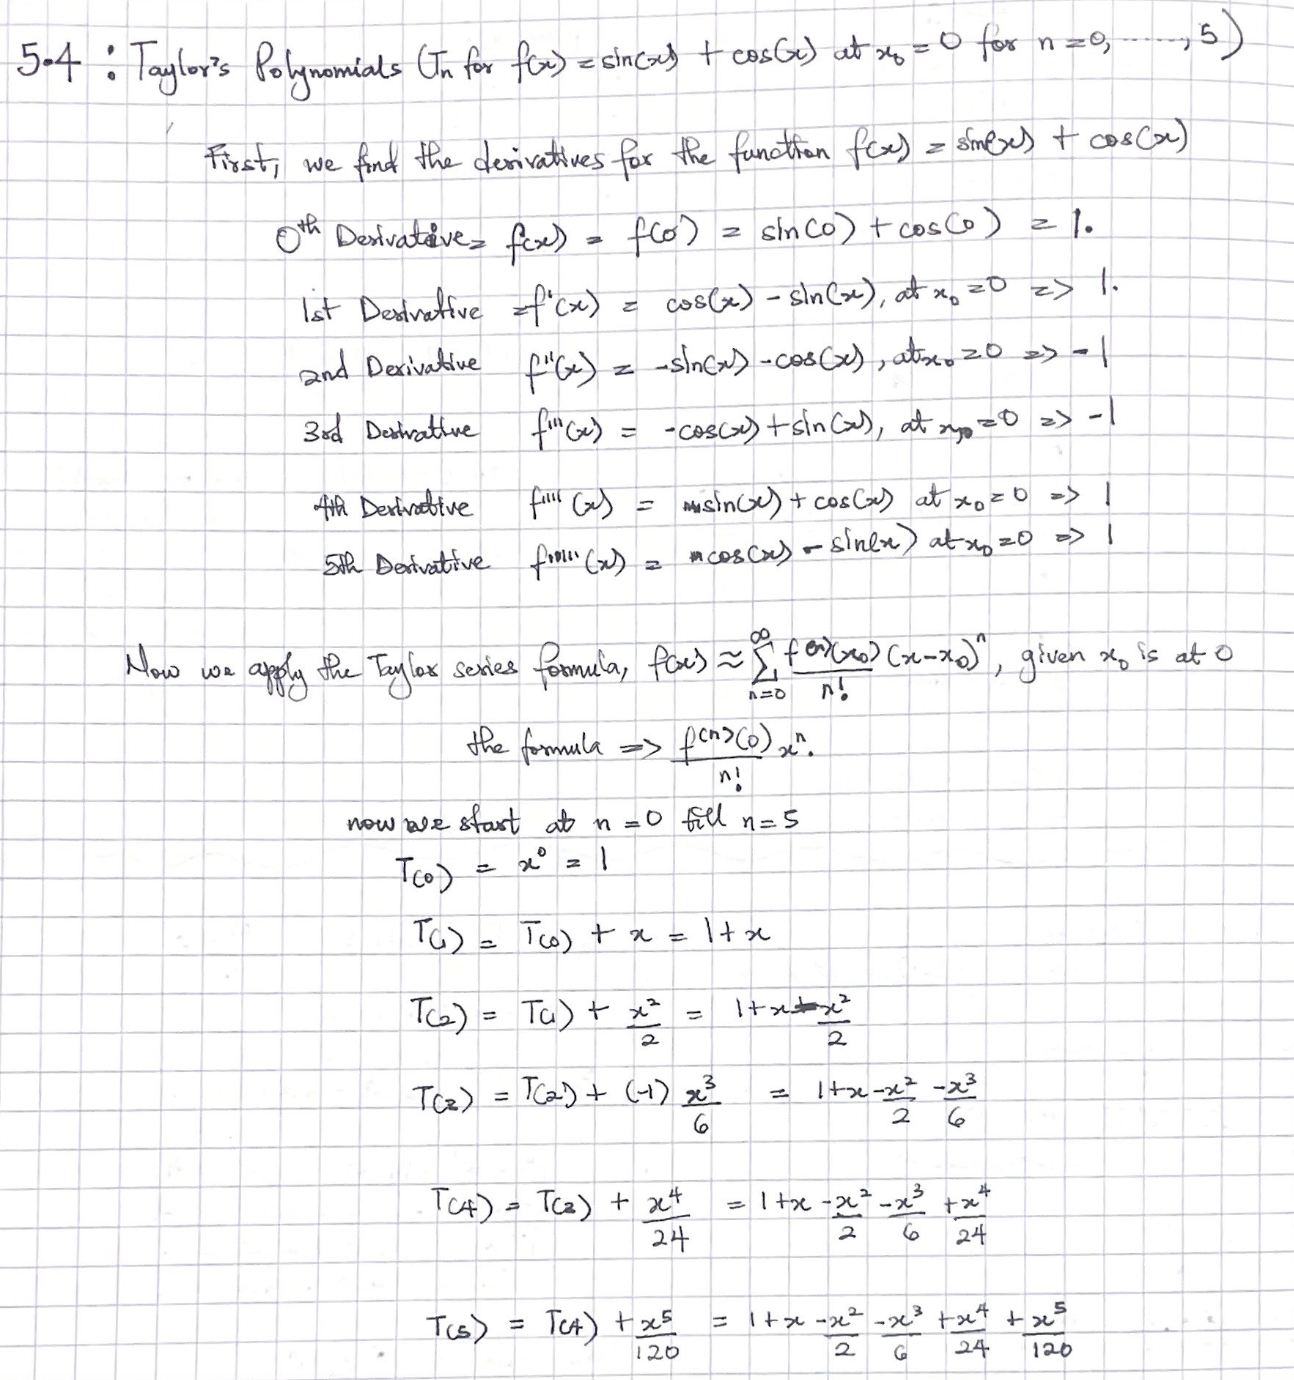 5.4 : Taylor's Polynomials (Tn for f(x) = sin(x) + cos(x) at x₀ = 0 for n=0, ......, 5)
First, we find the derivatives for the function f(x) = sin(x) + cos(x)
0th Derivative = f(x) = f(0) = sin(0) + cos(0) = 1.
1st Derivative = f'(x) = cos(x) - sin(x), at x₀ = 0 => 1.
2nd Derivative f''(x) = -sin(x) - cos(x), at x₀ = 0 => -1
3rd Derivative f'''(x) = -cos(x) + sin(x), at x₀ = 0 => -1
4th Derivative f''''(x) = sin(x) + cos(x) at x₀ = 0 => 1
5th Derivative f'''''(x) = cos(x) - sin(x) at x₀ = 0 => 1
Now we apply the Taylor series formula, f(x) ≈ ∞∑n=0 f(n)(x₀)(x-x₀)ⁿ/n!, given x₀ is at 0
the formula => f(n)(0)/n! xⁿ.
now we start at n = 0 till n = 5
T(0) = x⁰ = 1
T(1) = T(0) + x = 1 + x
T(2) = T(1) + x²/2 = 1 + x - x²/2
T(3) = T(2) + (-1) x³/6 = 1 + x - x²/2 - x³/6
T(4) = T(3) + x⁴/24 = 1 + x - x²/2 - x³/6 + x⁴/24
T(5) = T(4) + x⁵/120 = 1 + x - x²/2 - x³/6 + x⁴/24 + x⁵/120